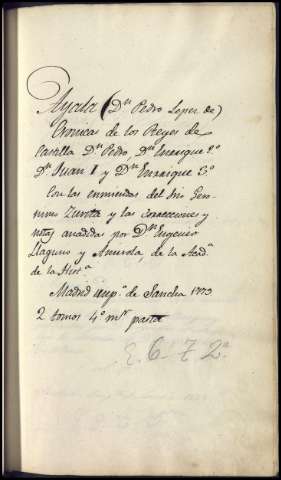 Ayala (Dⁿ Pedro Lopez de)
Cronica de los Reyes de
Castilla Dⁿ Pedro, Dⁿ Enrique 2º
Dⁿ Juan I y Dⁿ Enrrique 3º
Con las enmiendas del Srio Gero-
nimo Zurita y las correcciones y
notas anadidas por Dⁿ Eugenio
Llaguno y Amirola, de la Acadª
de la Histª
Madrid impª de Sancha 1779
2 tomos 4º mˡˡ pasta
E. 672ª